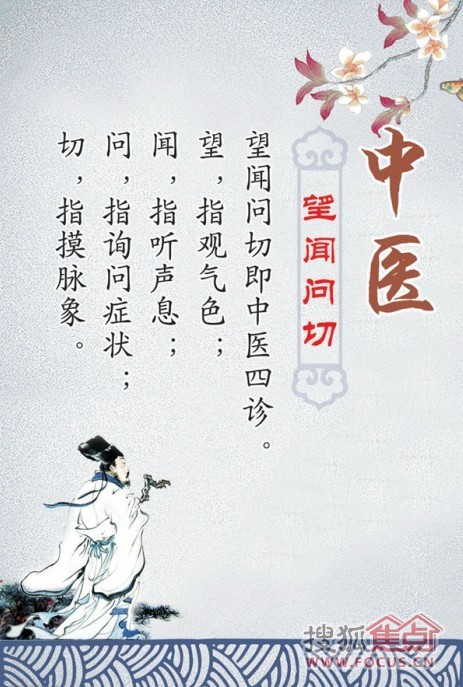 中医
望闻问切
望闻问切即中医四诊。
望，指观气色；
闻，指听声息；
问，指询问症状；
切，指摸脉象。
搜狐焦点
WWW.FOCUS.CN